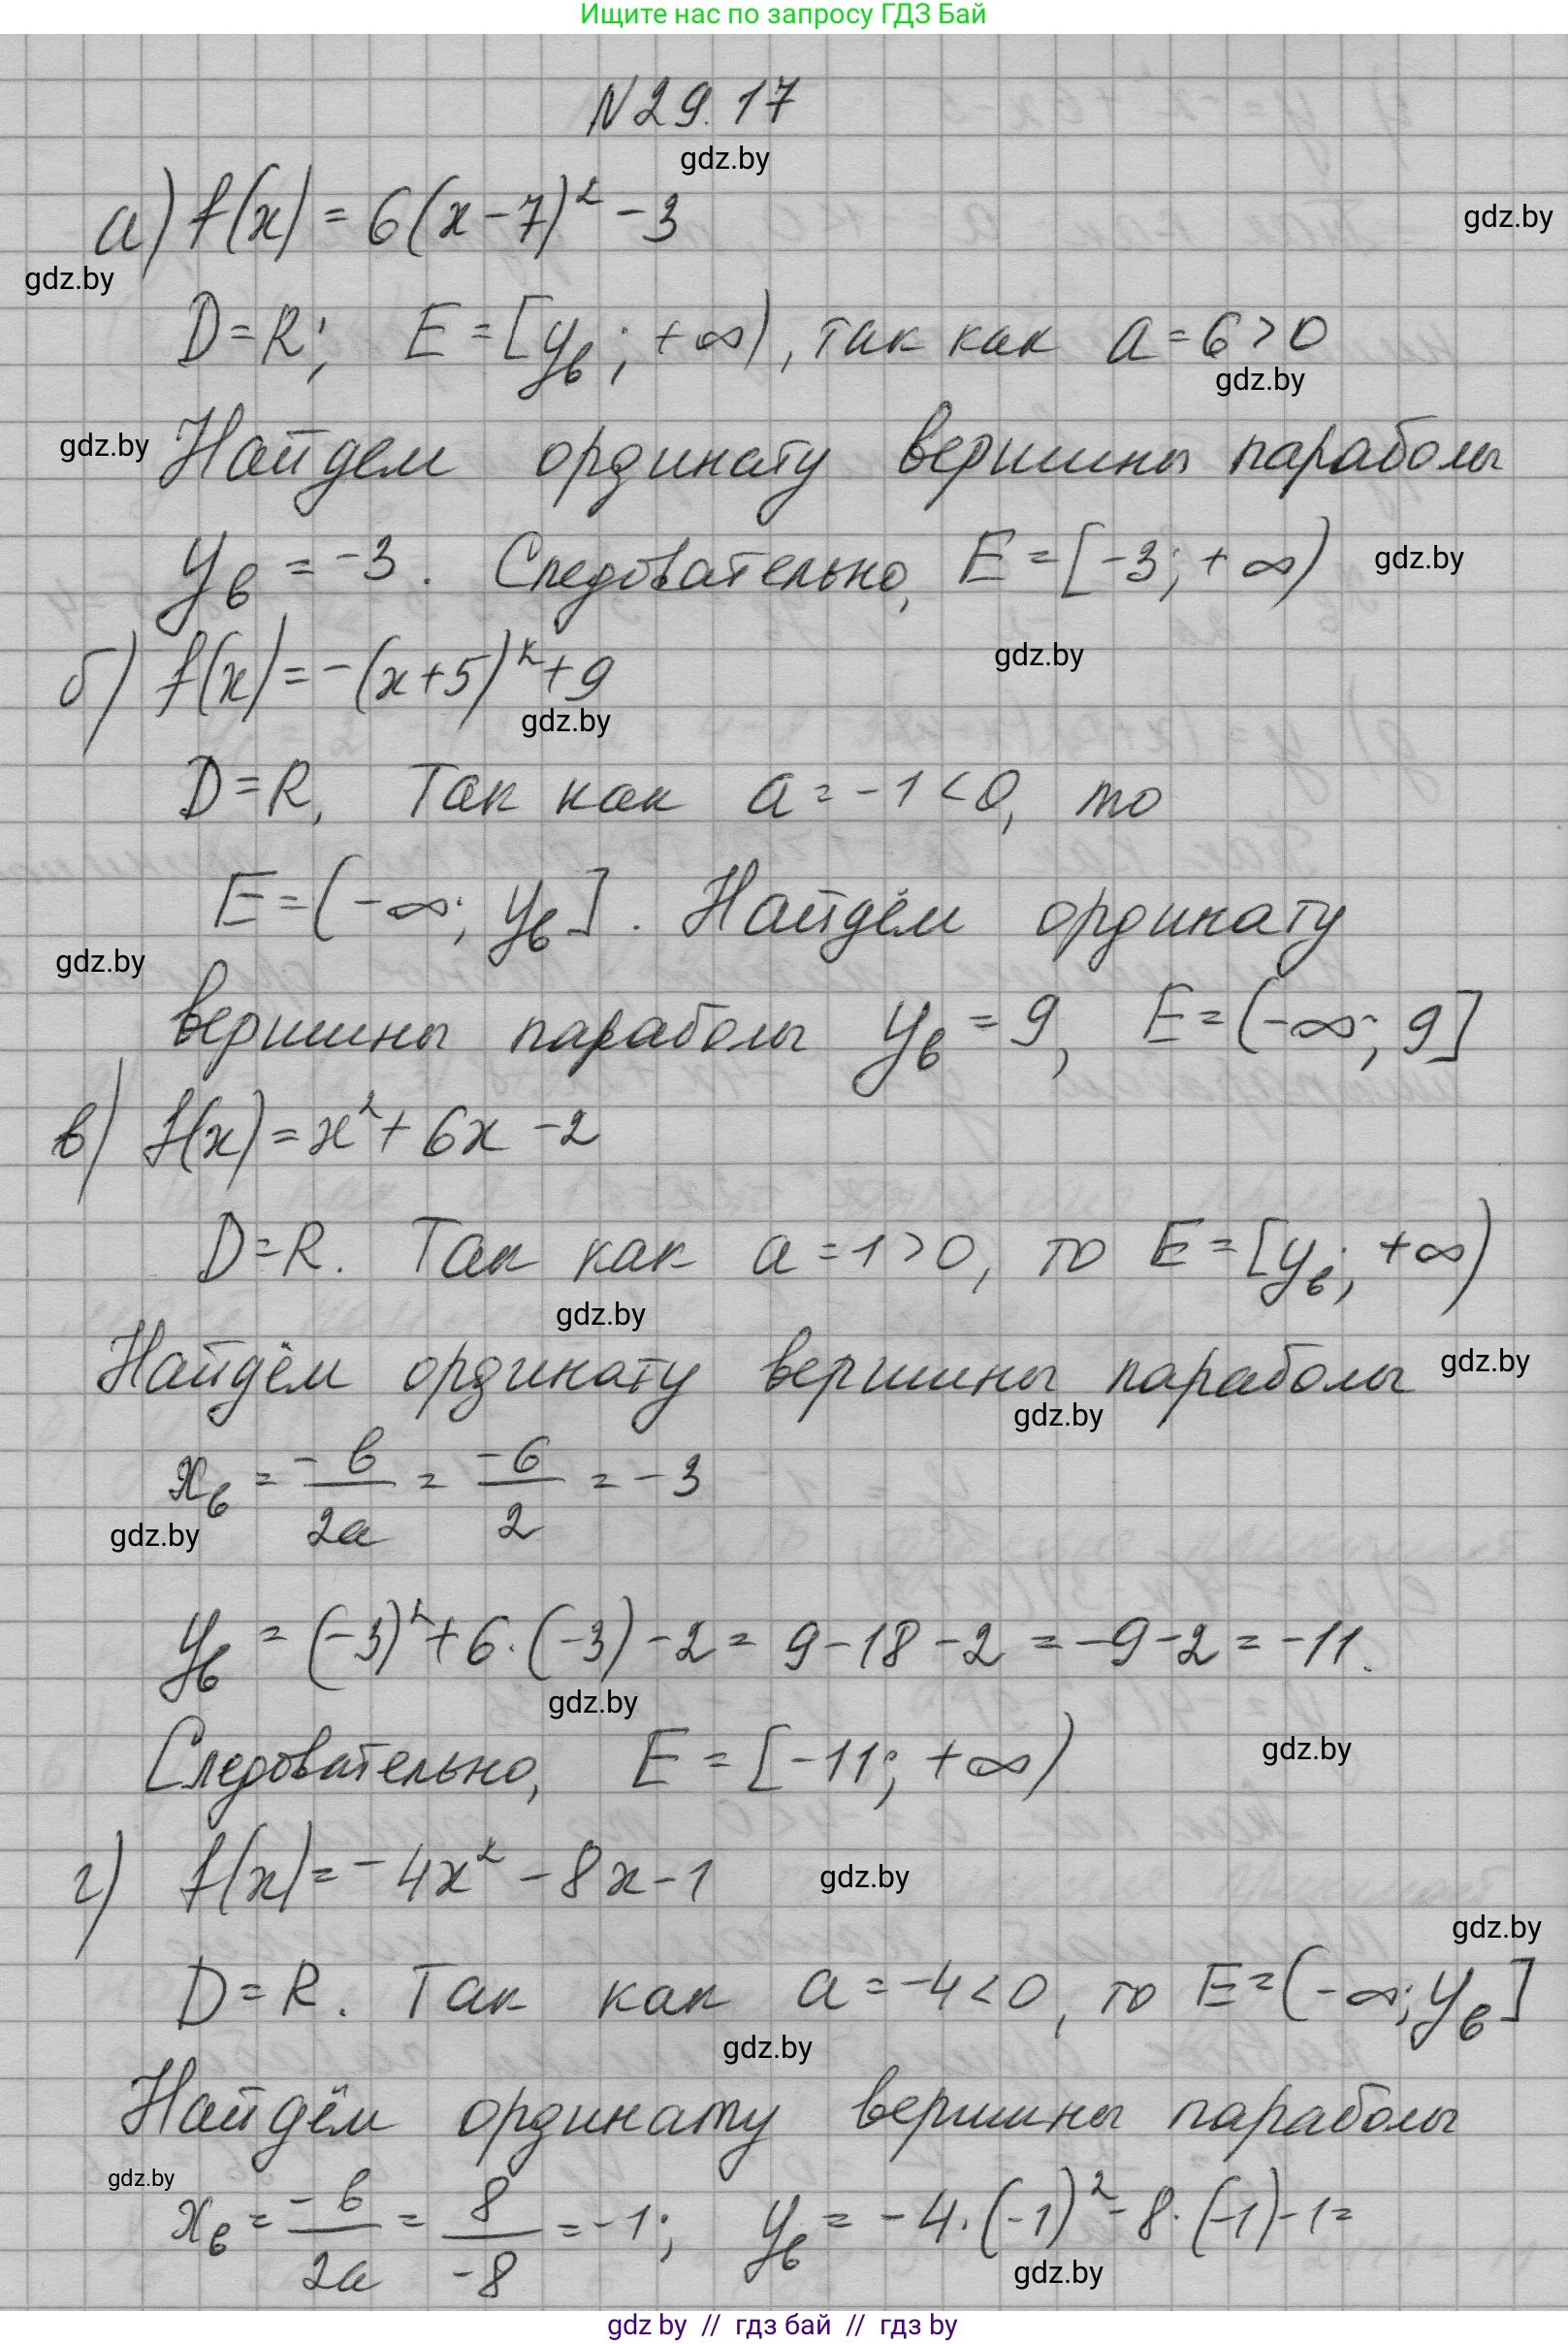 Ищите нас по запросу ГДЗ Бай
N 29.17
gdz.by
а) f(x) = 6(x-7)² - 3
gdz.by
gdz.by
D=R; E=[yв; +∞), так как a=6>0
gdz.by
gdz.by
Найдем ординату вершины параболы
yв = -3. Следовательно, E=[-3; +∞)
gdz.by
gdz.by
б) f(x)=-(x+5)²+9
gdz.by
D=R, Так как a=-1<0, то
E=(-∞; yв]. Найдём ординату
gdz.by
вершины параболы yв=9, E=(-∞; 9]
в) f(x)=x²+6x-2
D=R. Так как a=1>0, то E=[yв; +∞)
gdz.by
Найдём ординату вершины параболы
gdz.by
gdz.by
xв = -в/2a = -6/2 = -3
gdz.by
yв = (-3)²+6·(-3)-2 = 9-18-2 = -9-2 = -11.
gdz.by
gdz.by
Следовательно, E=[-11; +∞)
г) f(x)=-4x²-8x-1
gdz.by
gdz.by
D=R. Так как a=-4<0, то E=(-∞; yв]
gdz.by
Найдём ординату вершины параболы
gdz.by
xв = -в/2a = 8/-8 = -1; yв = -4·(-1)²-8·(-1)-1=
gdz.by
gdz by // гдз бай // гдз by